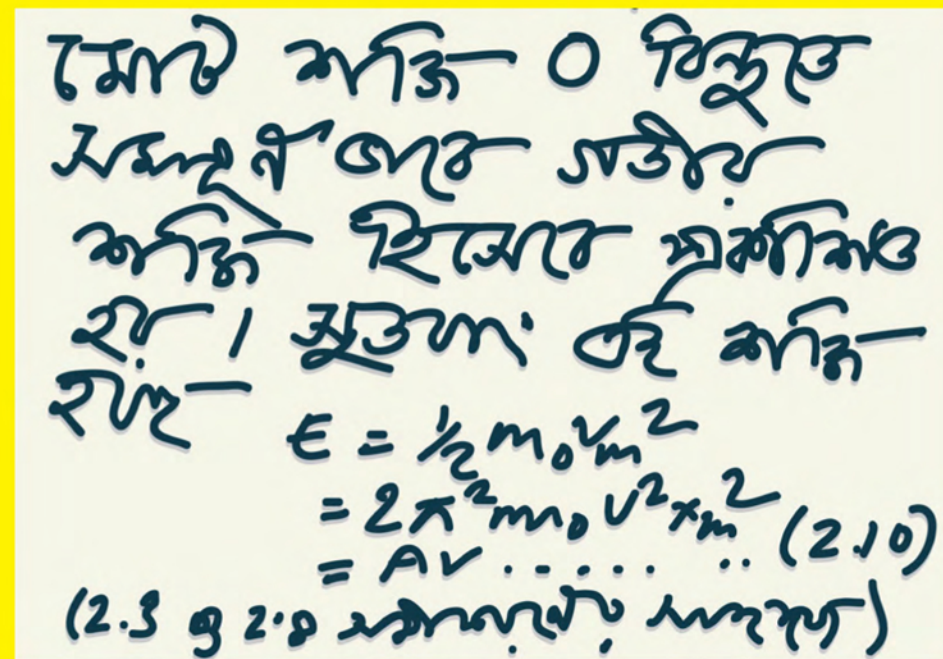 মোট শক্তি O বিন্দুতে
সম্পূর্ণ ভাবে গতীয়
শক্তি হিসেবে প্রকাশিত
হয়। সুতরাং এই শক্তি
হচ্ছে
E = ½ m₀vₘ²
= 2π²m₀ν²xₘ²
= Aν ......... (2.10)
(2.3 ও 2.8 সমীকরণের সাহায্যে)